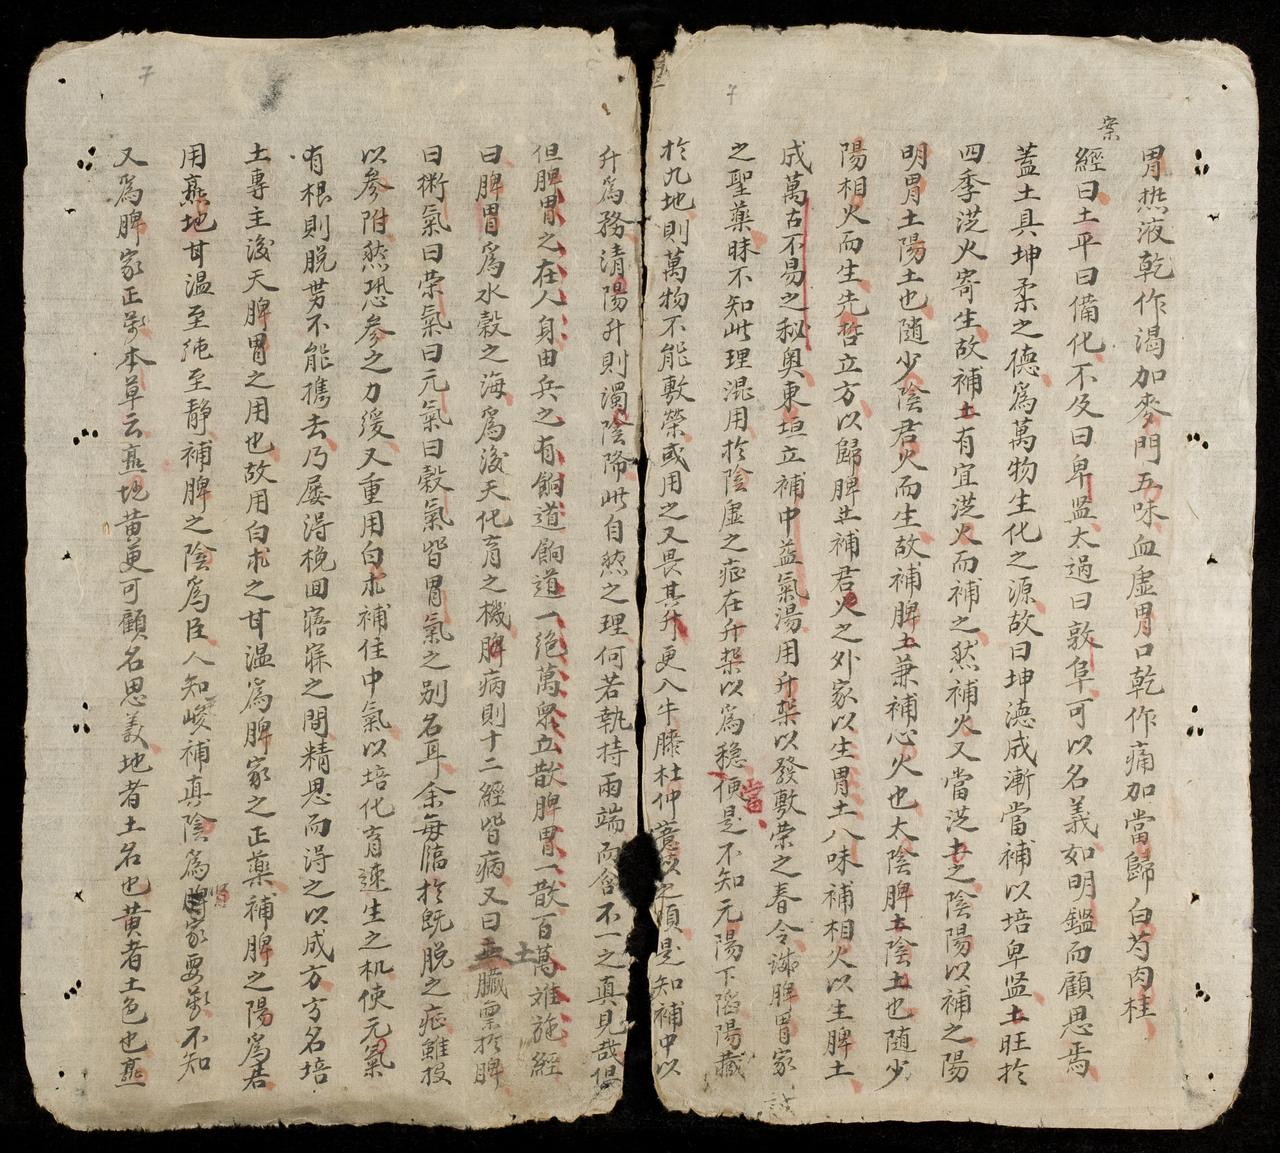 案
胃𤍠液乾作渴加麥門五味血虛胃口乾作痛加當歸白芍肉桂
經曰土平曰備化不及曰卑监太過曰敦阜可以名義如明鑑而顧思焉
蓋土具坤柔之德爲萬物生化之源故曰坤德咸漸當補以培卑监土旺於
四季茫火寄生故補土有宜茫火而補之然補火又當茫土之陰陽以補之陽
明胃土陽土也随少陰君火而生故補脾土兼補心火也太陰脾土陰土也随少
陽相火而生先哲立方以歸脾㐀補君火之外家以生胃土八味補相火以生脾土
成萬古不易之秘奥東垣立補中益氣湯用升柴以發敷荣之春令誠脾胃家
之聖藥昧不知此理混用於陰虛之症在升柴以爲穏便是不知元陽下陷陽藏
當
於九地則萬物不能敷榮或用之又畏其升更入牛膝杜仲 之 是知補中以
升爲務清陽升則濁陰降此自然之理何若執持兩端而含不一之真見哉
但脾胃之在人身由兵之有餉道餉道一絕萬衆立散脾胃一散百萬难施經
曰脾胃爲水穀之海爲後天化育之機脾病則十二經皆病又曰土臟禀於脾
曰衛氣曰荣氣曰元氣曰穀氣皆胃氣之别名耳余每臨於既脱之症雖投
以参附然恐参之力缓又重用白朮補住中氣以培化育速生之机使元氣
有根則脱势不能携去乃屡得挽回寤寐之間精思而得之以成方方名培
土專主後天脾胃之用也故用白朮之甘温爲脾家之正藥補脾之陽爲君
用熟地甘温至純至静補脾之陰爲臣人知峻補真陰爲腎家要藥不知
又爲脾家正藥本草云熟地黄更可顧名思義地者土名也黄者土色也熟